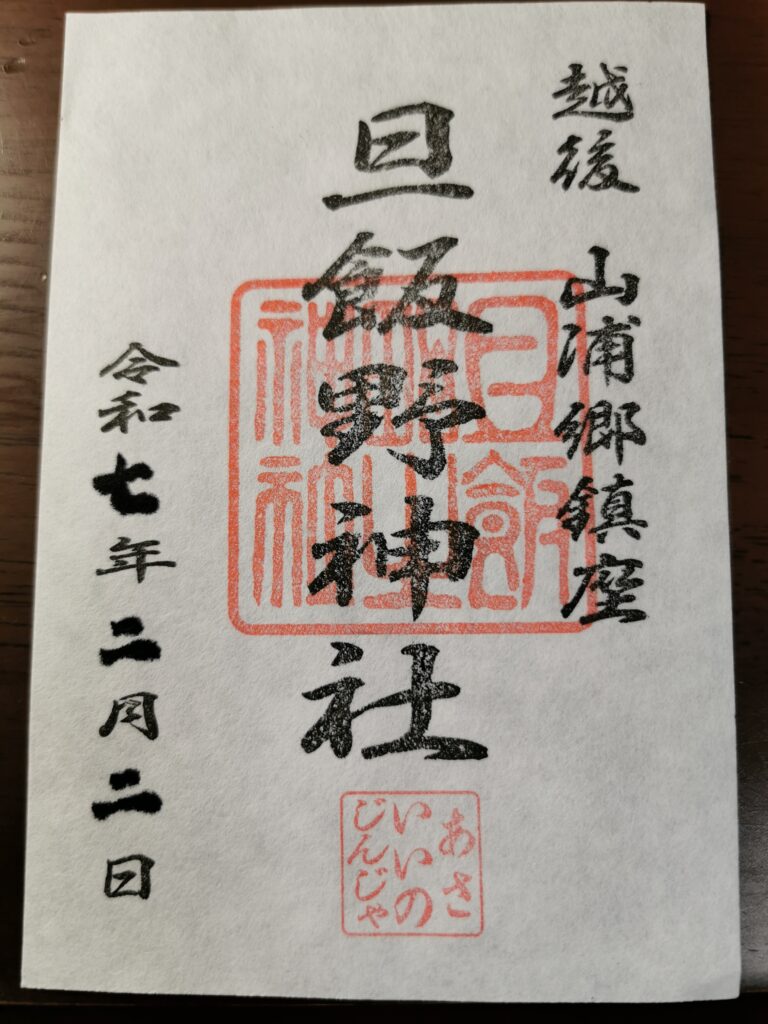 越後 山浦郷鎮座
旦飯野神社
令和七年二月二日
あさ
いいの
じんじゃ